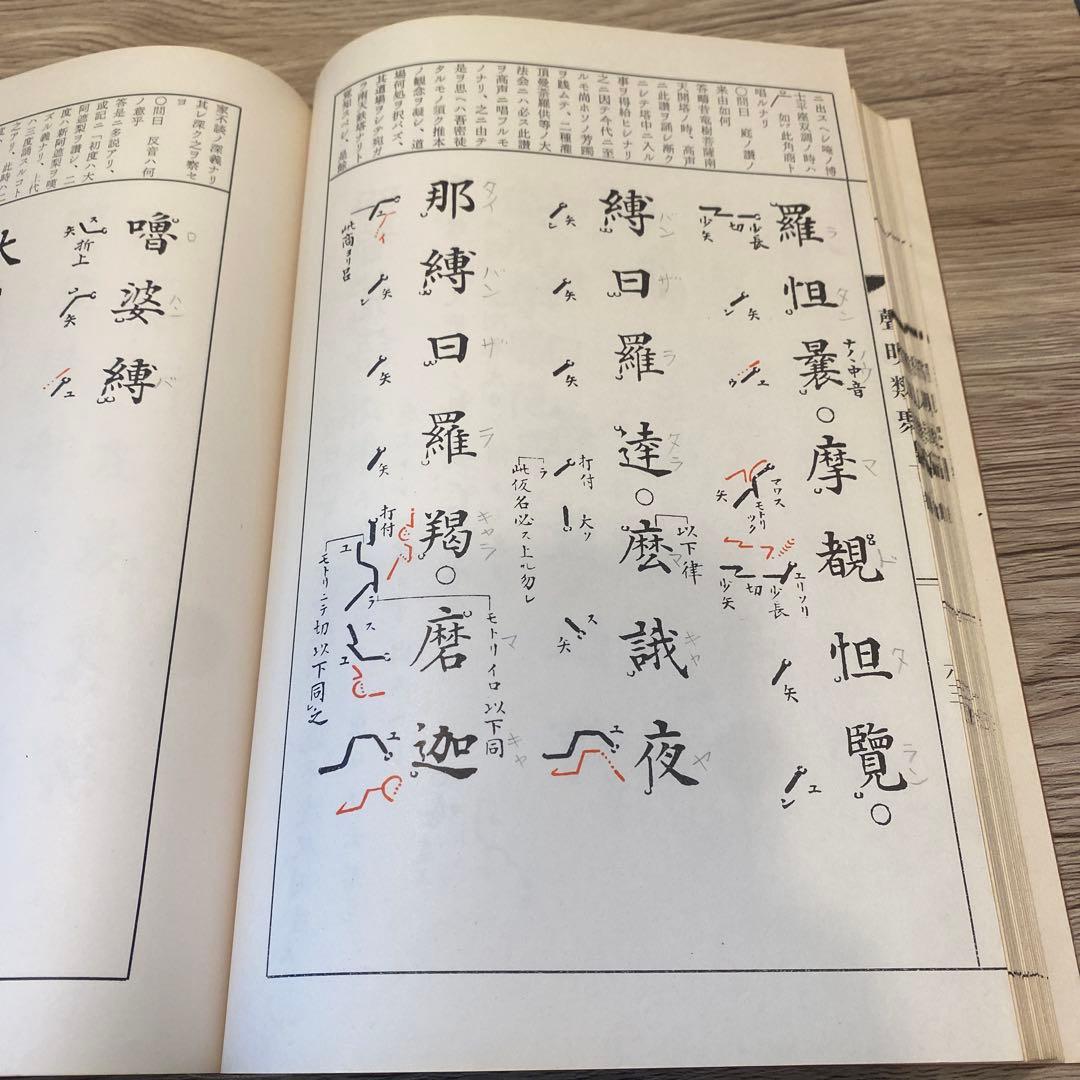 ニ出スヘレ唵ノ博
士平座双調ノ時ハ
如ㇰ此角商ト
唱ルナリ
〇問曰 庭ノ讃ノ
来由如何
答疇昔竜樹菩薩南
天開塔ノ時、高声
ニ此讃ヲ誦レ漸ク
ニレテ塔中ニ入ル
事ヲ得給ヒレナリ
之ニ因テ今代ニ至
ルモ尚ホソノ芳躅
ヲ践ムテ、二種灌
頂曼荼羅供等ノ大
法会ニハ必ス此讃
ヲ高声ニ唱フルモ
ノナリ、之ニ由テ
是ヲ思ヘハ吾密徒
タルモノ須ク推本
ノ観念ヲ凝レ、道
場何処ヲ択バズ、
其道場ヲレテ宛ガ
ラ南天鉄塔ナリト
羅怛曩〇摩覩怛覽〇
ラタンノウマドタラン
ナノヽ中音
少長
切
少矢
矢
ユ
マワス
モトリ
ツク
矢
ユリソリ
少長
切
少矢
矢
ユ
縛曰羅達〇麼誐夜
バンザラタラマキヤヤ
以下律
矢
矢
矢
打付
大ソ
ラ
此仮名必ス上ル勿レ
ス
矢
ユ
那縛曰羅羯〇磨迦
タイバンザラキャラマキャ
ユ
イ
此商ヨリ呂
矢
矢
矢
打付
ユ
モトリニテ切以下同之
ラ
ス
ユ
モトリイロ以下同
ユ
聲明類聚
家不談ノ深義ナリ
其レ深ク之ヲ察セ
ヨ
〇問曰 反音ハ何
ノ意乎
答是ニ多説アリ、
或記ニ「初度ハ大
阿遮梨ヲ讃シ、二
度ハ新阿遮梨ヲ嘆
ズル義ナリ、上代
ハ三度誦スルコト
嚕婆縛
ロハンバ
ス
矢
折上
矢
ユ